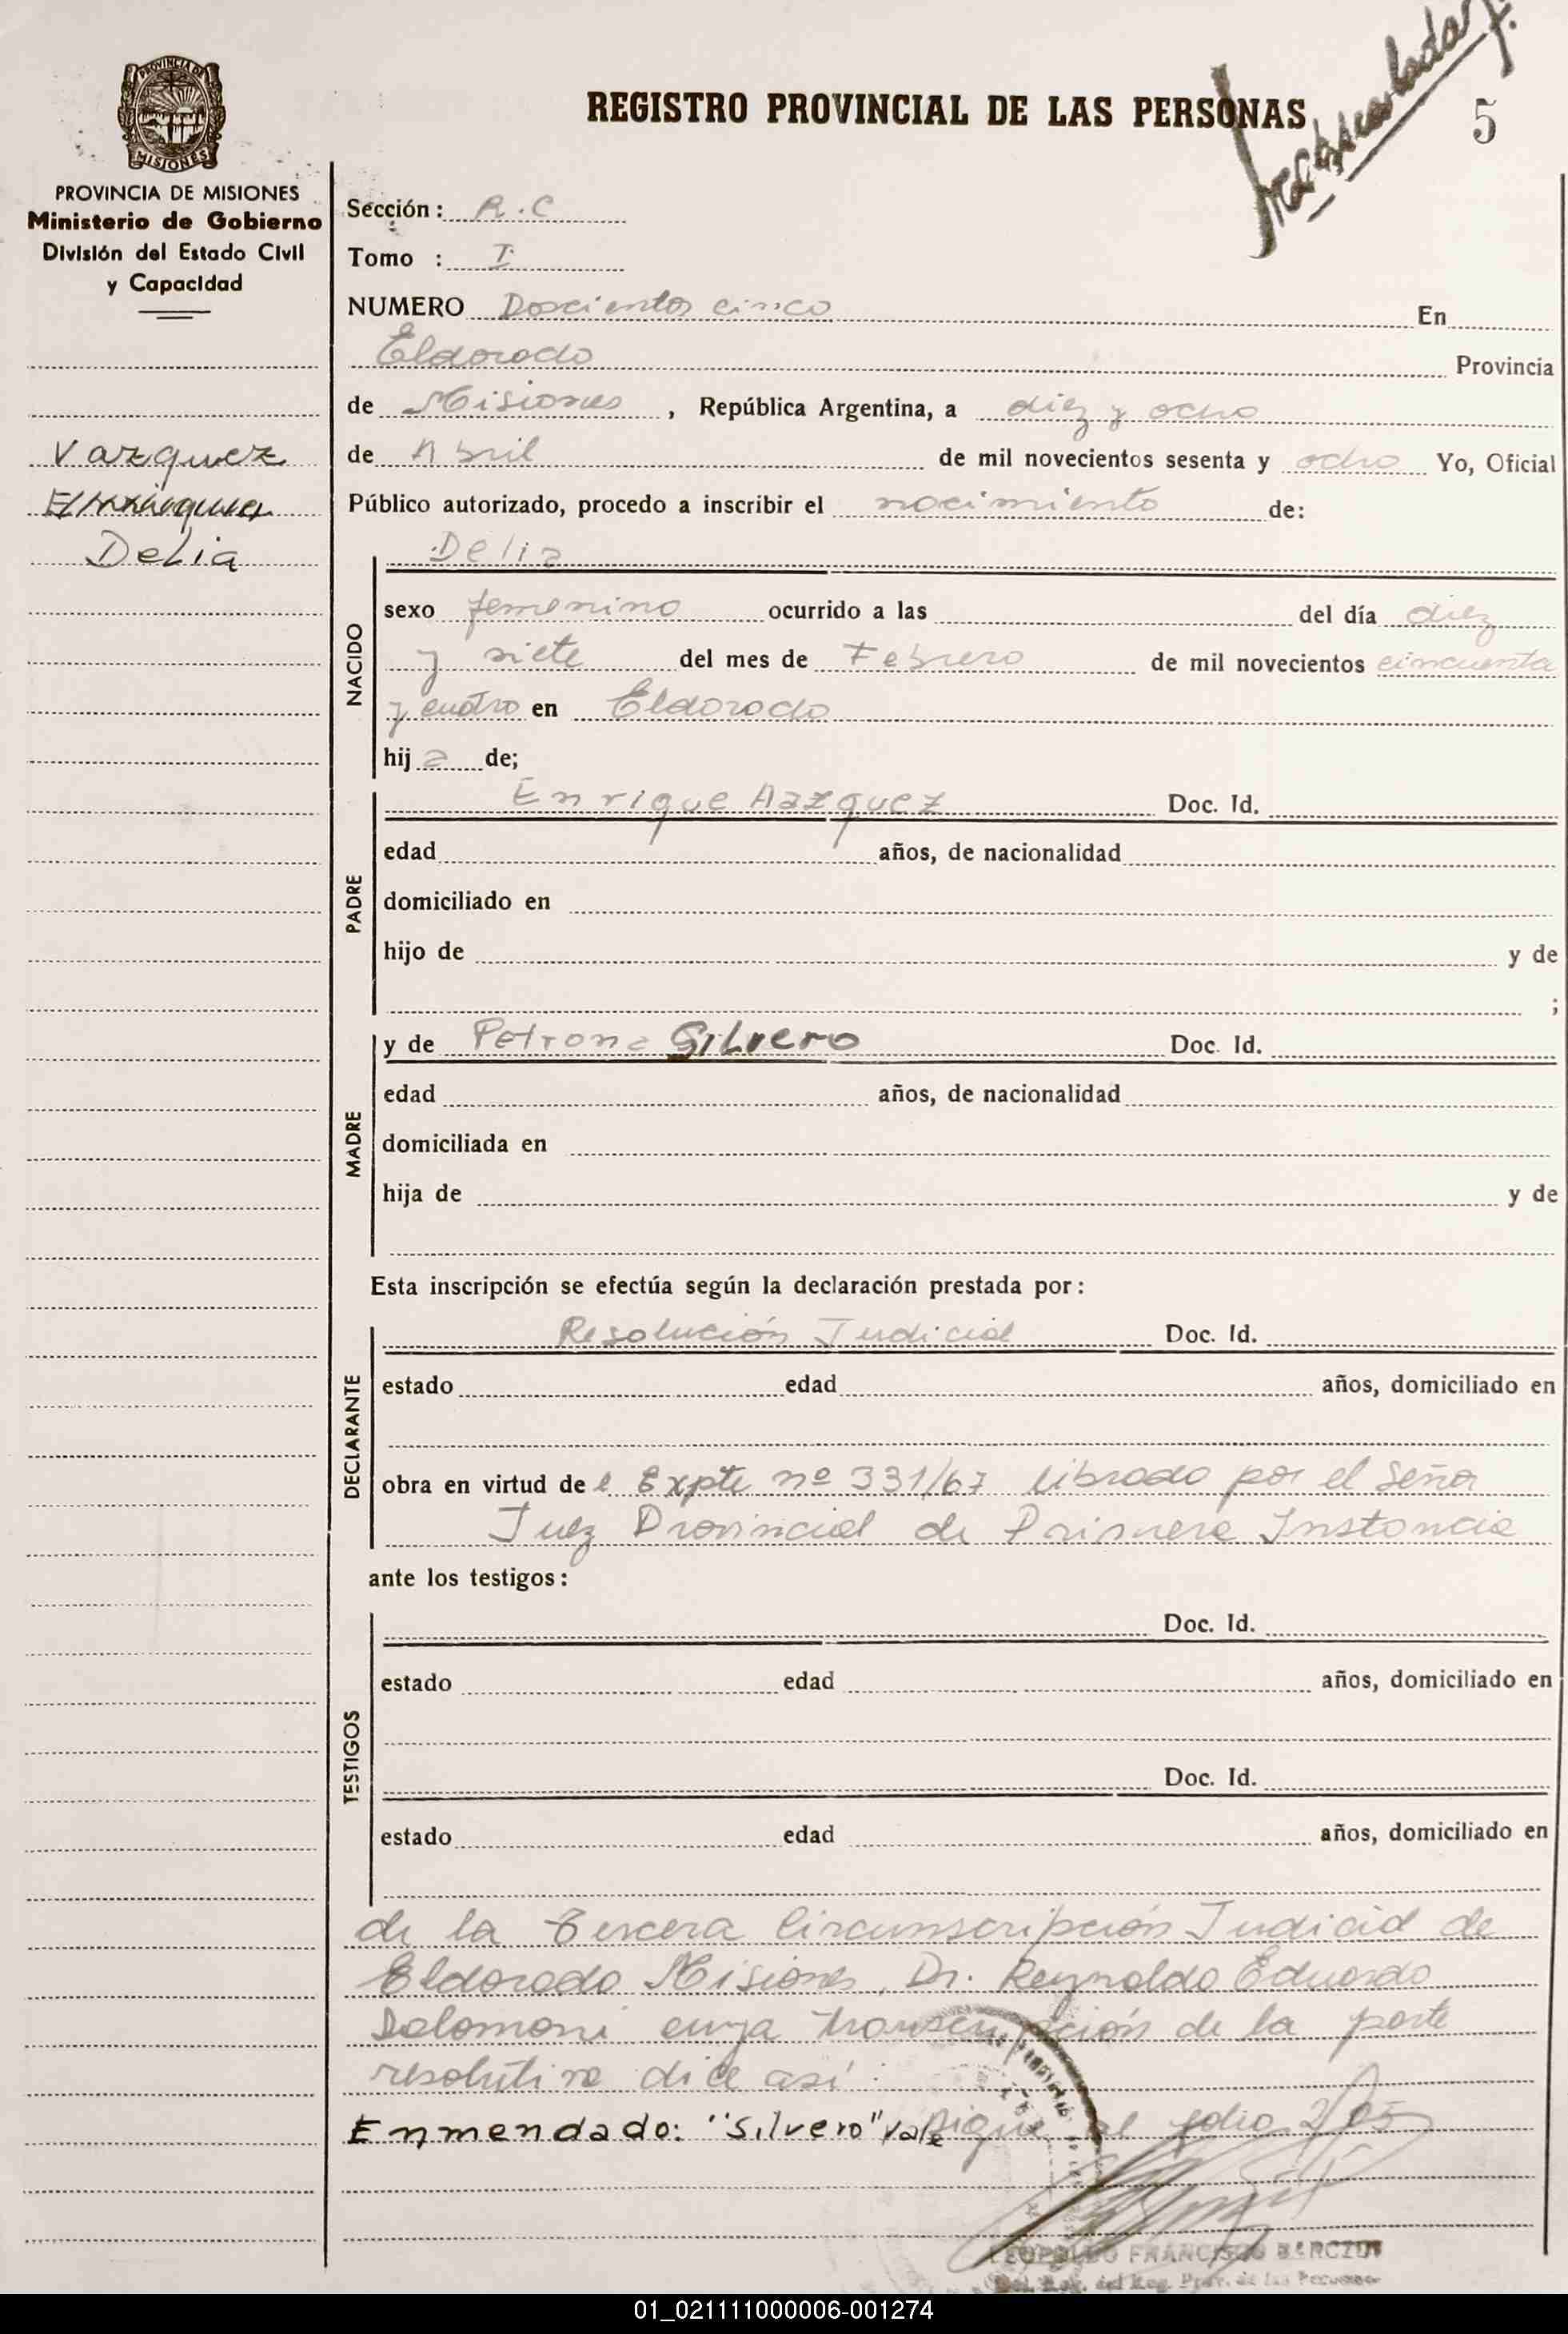 REGISTRO PROVINCIAL DE LAS PERSONAS
5
PROVINCIA DE
MISIONES
PROVINCIA DE MISIONES
Ministerio de Gobierno
División del Estado Civil
y Capacidad
Vazquez
Delia
Sección: R.C
Tomo : I
NUMERO Doscientos cinco En
Eldorado Provincia
de Misiones, República Argentina, a diez y ocho
de Abril de mil novecientos sesenta y ocho Yo, Oficial
Público autorizado, procedo a inscribir el nacimiento de:
NACIDO
Delia
sexo femenino ocurrido a las del día diez
y siete del mes de Febrero de mil novecientos cincuenta
y cuatro en Eldorado
hija de;
PADRE
Enrique Vazquez Doc. Id.
edad años, de nacionalidad
domiciliado en
hijo de y de
;
MADRE
y de Petrona Silvero Doc. Id.
edad años, de nacionalidad
domiciliada en
hija de y de
Esta inscripción se efectúa según la declaración prestada por:
DECLARANTE
Resolución Judicial Doc. Id.
estado edad años, domiciliado en
obra en virtud del Expte nº 331/67 librado por el Señor
Juez Provincial de Primera Instancia
ante los testigos:
TESTIGOS
Doc. Id.
estado edad años, domiciliado en
Doc. Id.
estado edad años, domiciliado en
de la Tercera Circunscripción Judicial de
Eldorado Misiones, Dr. Reynaldo Eduardo
Salomoni cuya transcripción de la parte
resolutiva dice así:
Enmendado: "Silvero" Vale sigue al folio 2/05
LEOPOLDO FRANCISCO
del Reg. Prov. de las Personas
01_021111000006-001274